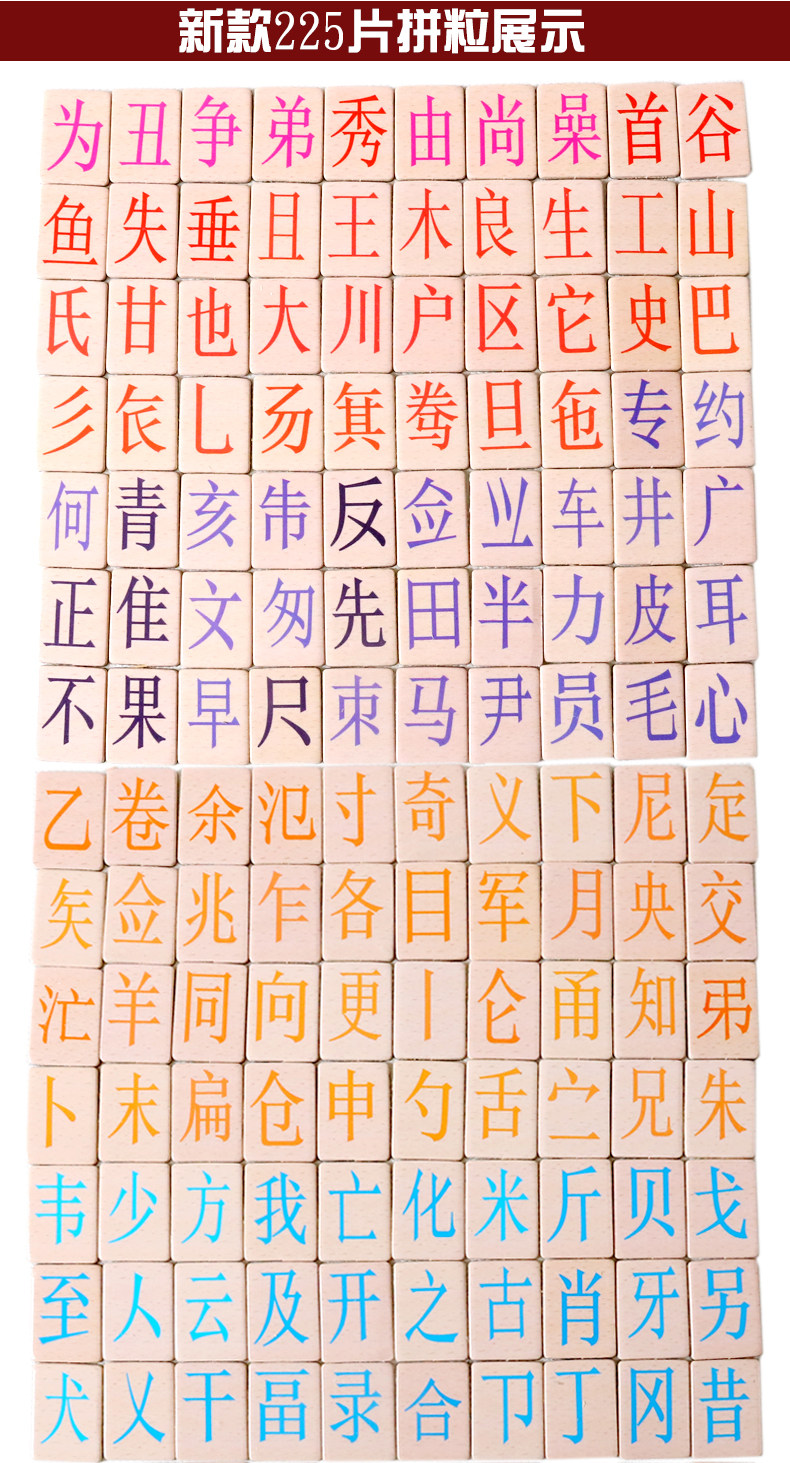 新款225片拼粒展示
为 丑 争 弟 秀 由 尚 喿 首 谷
鱼 失 垂 且 王 木 良 生 工 山
氏 甘 也 大 川 户 区 它 史 巴
彡 乚 旦 专 约
何 青 亥 反 佥 车 井 广
正 隹 文 匆 先 田 半 力 皮 耳
不 果 早 尺 朿 马 尹 员 毛 心
乙 卷 余 氾 寸 奇 义 下 尼
矣 佥 兆 乍 各 目 军 月 央 交
汒 羊 同 向 更 丨 仑 甬 知 弔
卜 末 扁 仓 申 勺 舌 兄 朱
韦 少 方 我 亡 化 米 斤 贝 戈
至 人 云 及 开 之 古 肖 牙 另
犬 乂 干 畐 录 合 卩 丁 冈 昔